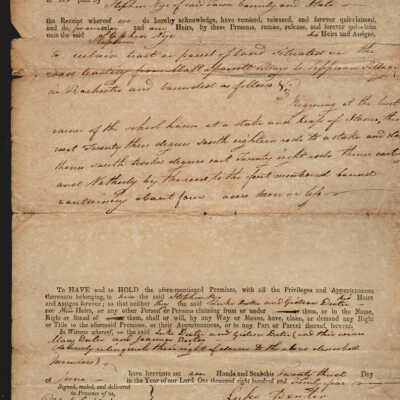 by Stephen Nye of said town County and State
the Receipt whereof do hereby acknowledge, have remised, released, and forever quitclaimed,
and do for and Heirs, by these Presents, remise, release, and forever quitclaim
unto the said Stephen Nye his Heirs and Assigns,
Stephen
a certain tract or parcel of land situated on the
road leading from to
in Rochester and bounded as follows
Begining at the east
corner of the school house at a stake and heap of stones, thence
west Twenty three degrees south eighteen rods to a stake and
thence south twelve degrees east Twenty eight rods thence east
and Northerly by the road to the first mentioned bound
containing about four acres more or less
To HAVE and to HOLD the afore-mentioned Premises, with all the Privileges and Appurtenances
thereunto belonging, to him the said Stephen Nye his Heirs
and Assigns forever; so that neither they the said and Gideon Dexter
nor Heirs, or any other Person or Persons claiming from or under them, or in the Name,
Right or Stead of them, shall or will, by any Way or Means, have, claim, or demand any Right
or Title to the aforesaid Premises, or their Appurtenances, or to any Part or Parcel thereof, forever.
In Witness whereof, we the said Dexter and Gideon Dexter and
Mary Dexter and Dexter
hereby relinquish their right of dower to the above described
premises
have hereunto set our Hands and Seals this twenty first Day
of June in the Year of our Lord One thousand eight hundred and
Signed, sealed, and delivered
in Presence of us,
Dexter